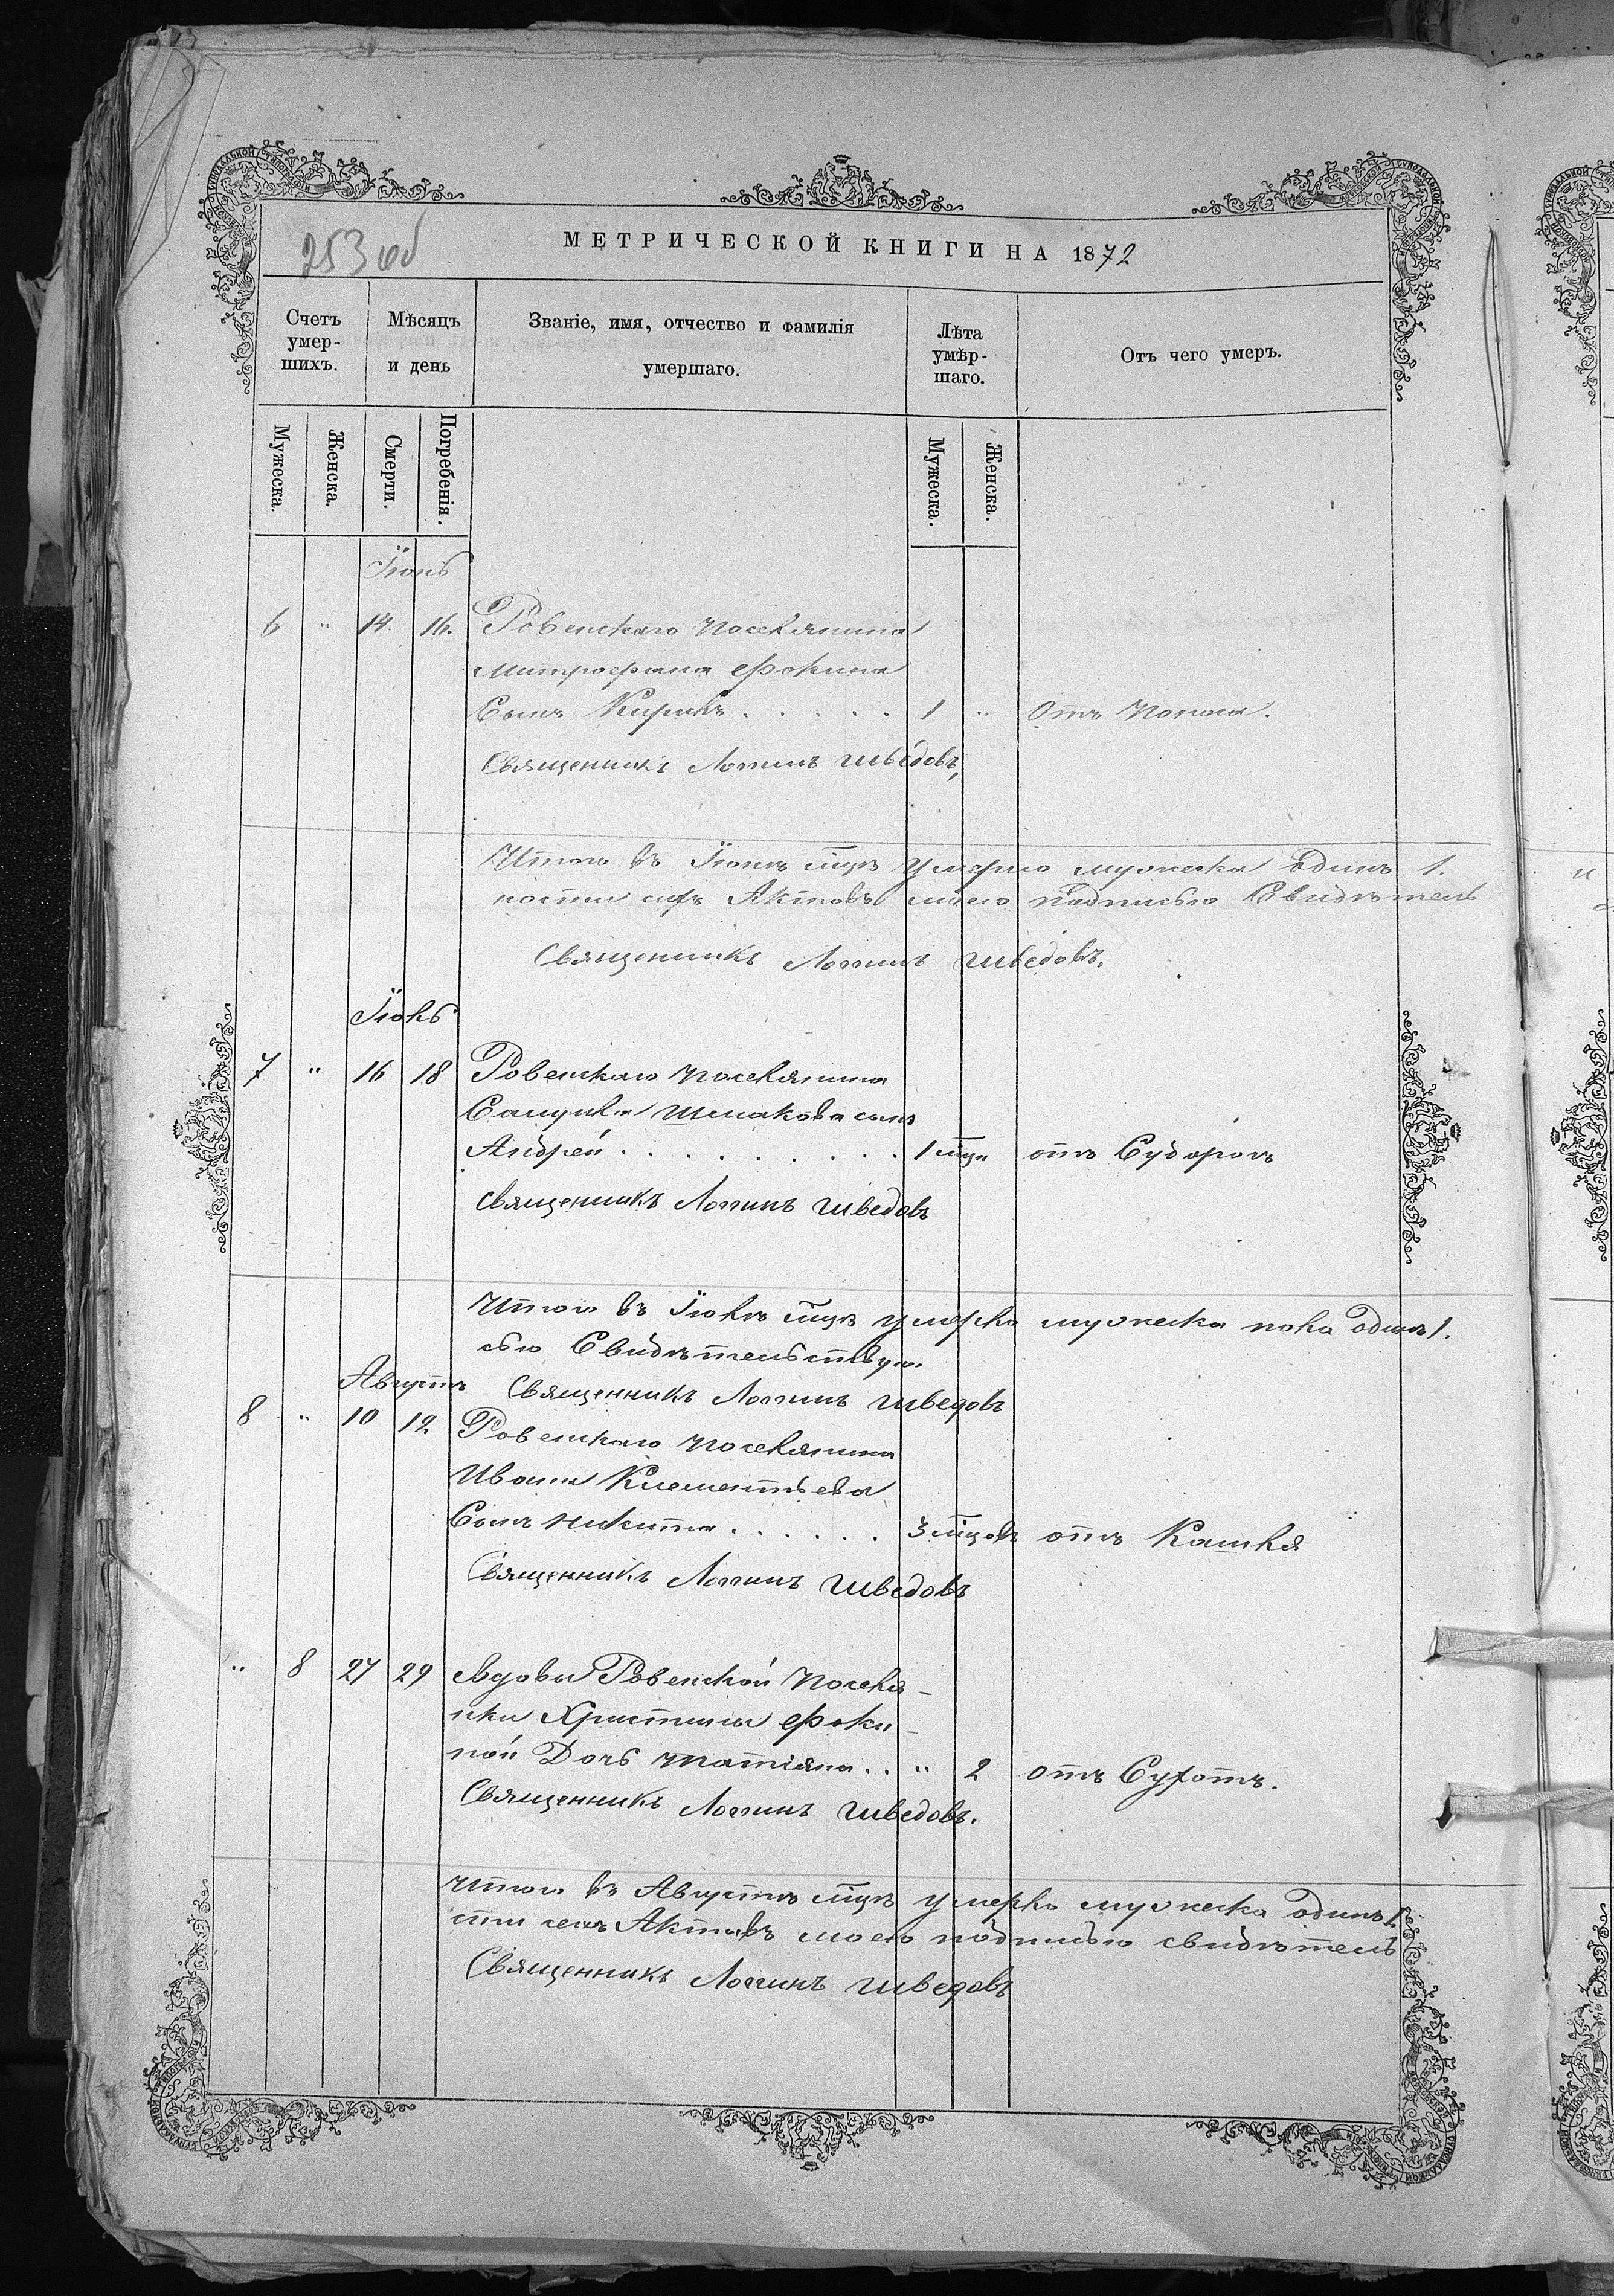 253 об
МЕТРИЧЕСКОЙ КНИГИ НА 1872
Счетъ умер-шихъ. Мѣсяцъ и день Званіе, имя, отчество и фамилія умершаго. Лѣта умѣр-шаго. Отъ чего умеръ.
Мужеска. Женска. Смерти. Погребенія. Мужеска. Женска.
Іюнь
6 " 14 16. Ровенскаго поселянина
Митрофана Фокина
Сынъ Кирилъ . . . . . 1 " Отъ поноса.
Священникъ Логинъ Шведовъ,
Итого въ Іюнѣ мцѣ умерло мужеска одинъ 1.
ности сихъ Актовъ моею подписью Свидѣтель
Священникъ Логинъ Шведовъ.
Іюль
7 " 16 18 Ровенскаго поселянина
Самуила Шмакова сынъ
Андрей . . . . . . . . . 1 мцъ отъ Судоро��ъ
Священникъ Логинъ Шведовъ
Итого въ Іюлѣ мцѣ умерло мужеска пола одинъ 1.
сью Свидѣтельствую.
Августъ Священникъ Логинъ Шведовъ
8 " 10 12 Ровенскаго поселянина
Ивана Клементьева
Сынъ Никита . . . . . . 3 мцовъ отъ Кашля
Священникъ Логинъ Шведовъ
" 8 27 29 Вдовы Ровенской поселя-
нки Христины Фоки-
ной Дочь Татіяна . . " 2 отъ Сухотъ.
Священникъ Логинъ Шведовъ.
Итого въ Августѣ мцѣ умерло мужеска одинъ 1.
сти сехъ Актовъ моею подписью свидѣтель
Священникъ Логинъ Шведовъ